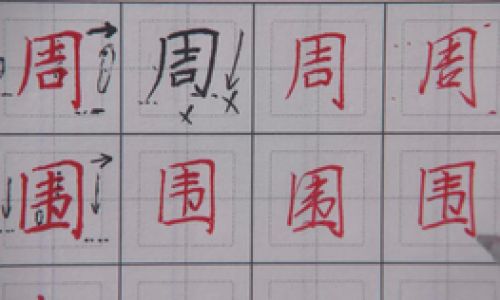 周 周 周 周
围 围 围 围